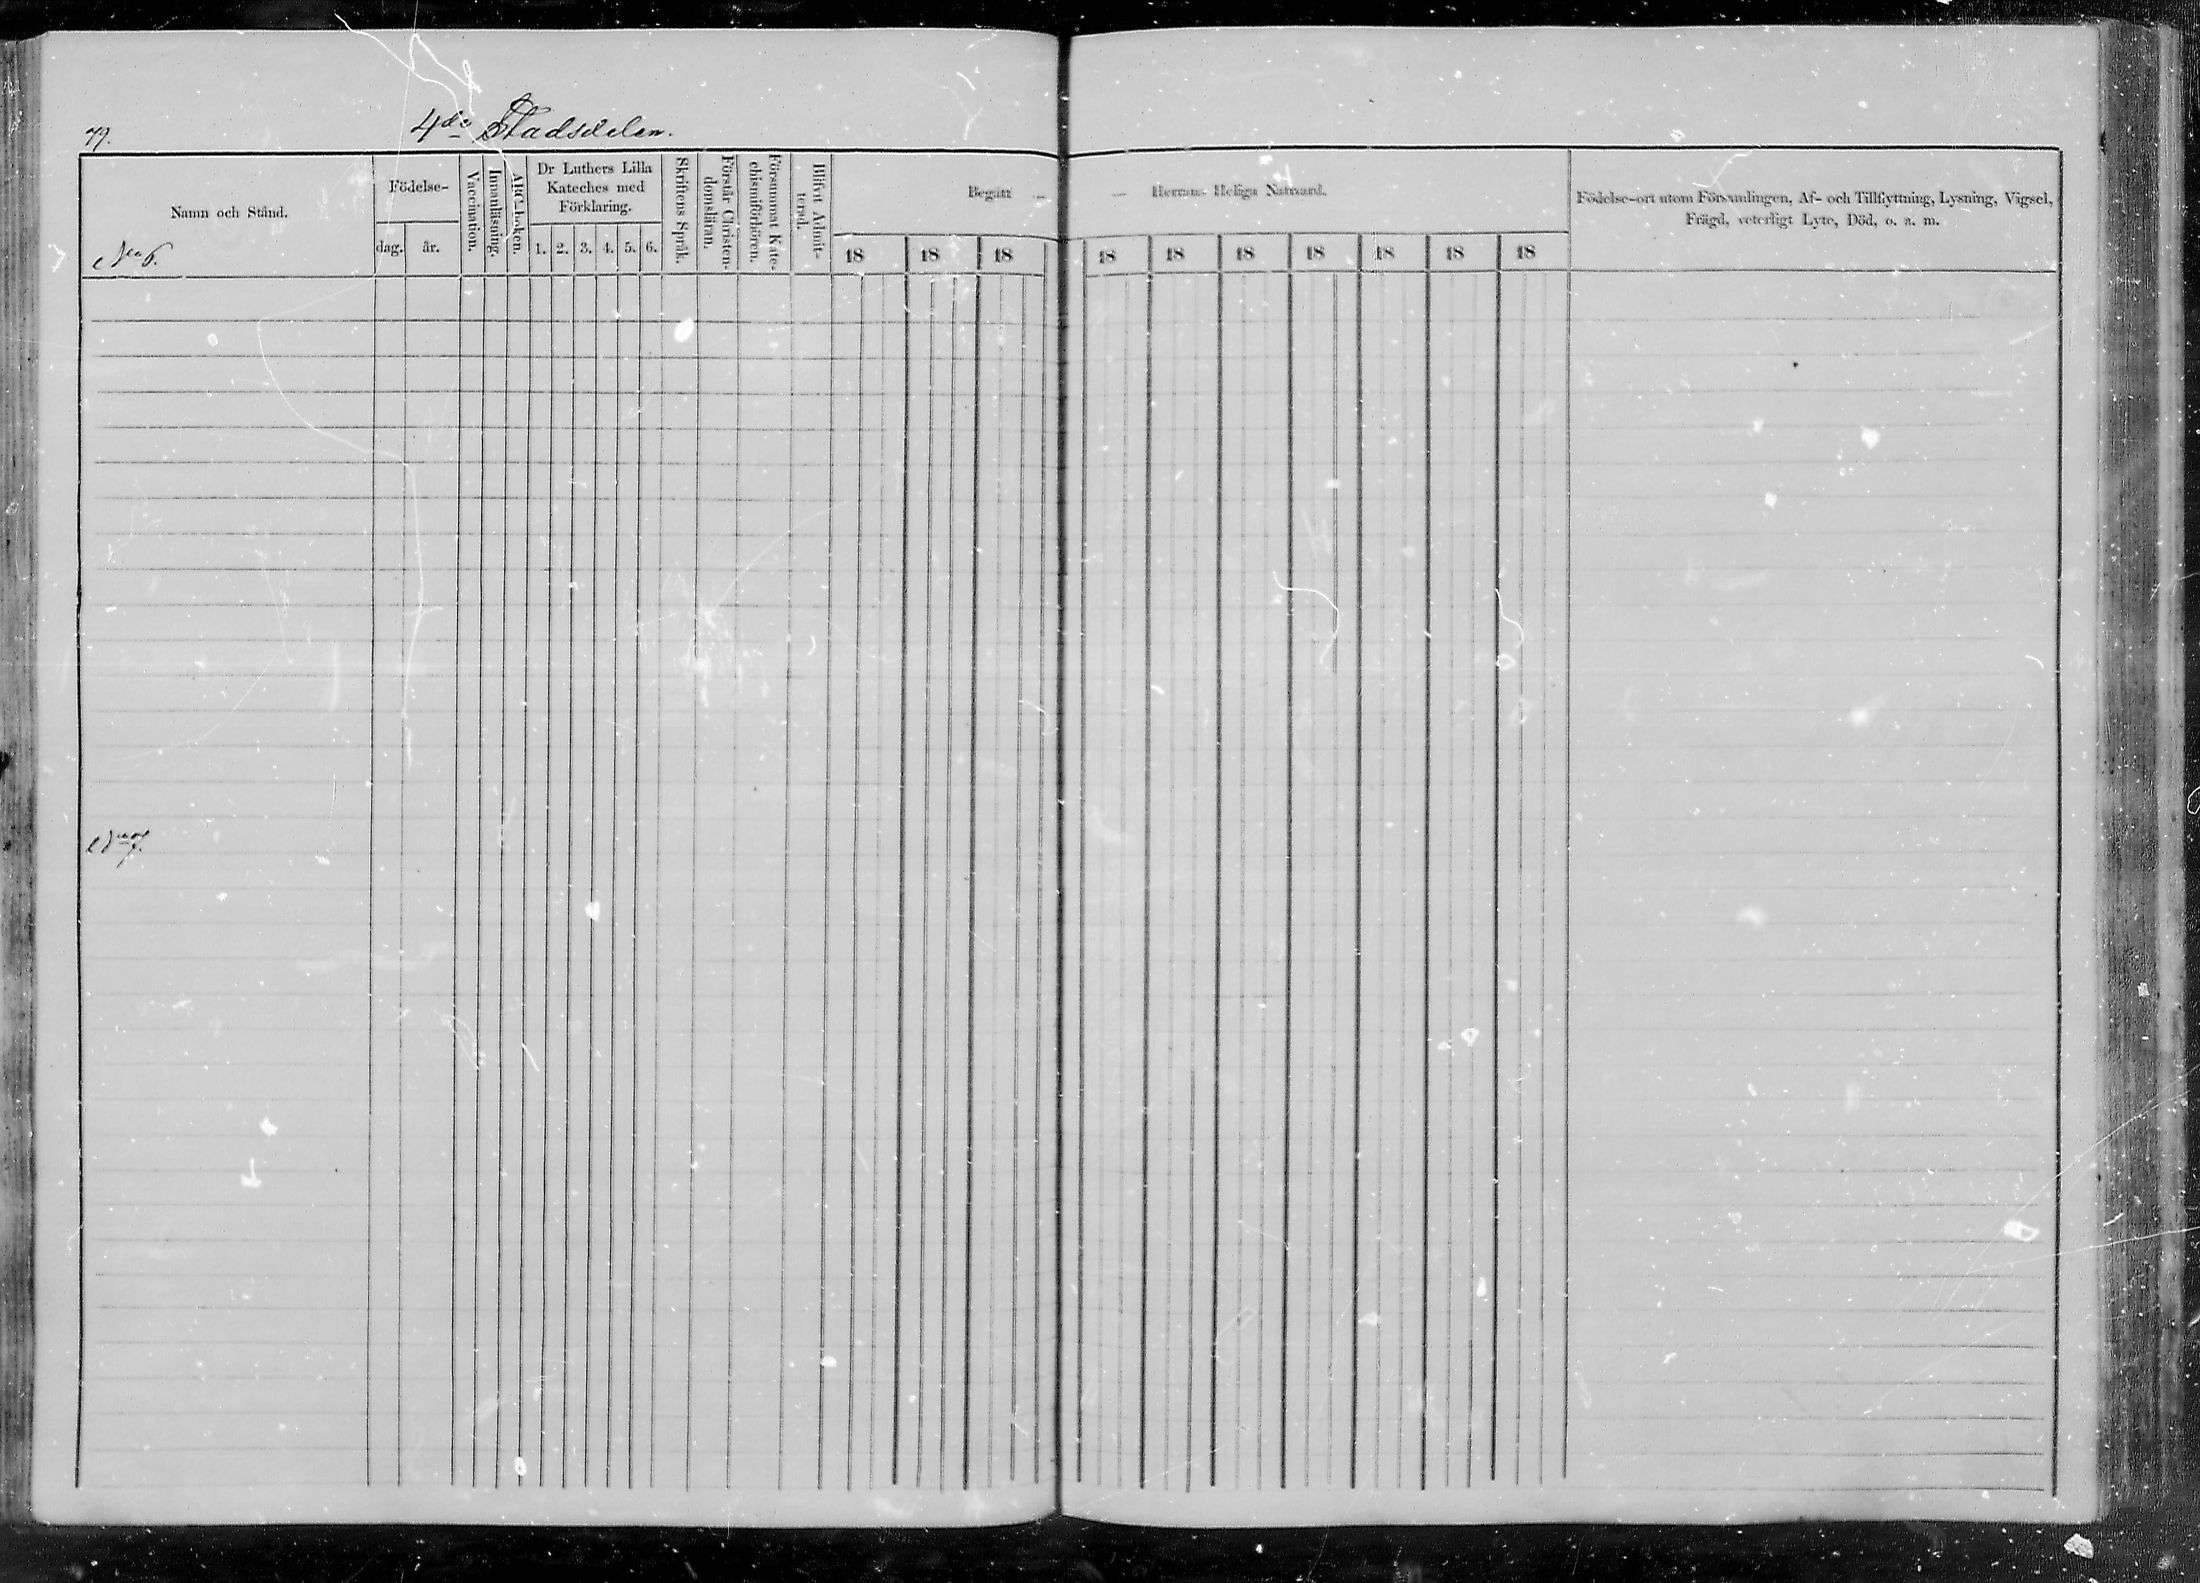 79.
4de Stadsdelen.
Namn och Stånd.
No 6.
Födelse-
dag. år.
Vaccination.
Innanläsning.
ABC-boken.
Dr Luthers Lilla
Kateches med
Förklaring.
1. 2. 3. 4. 5. 6.
Skriftens Språk.
Förstår Christen-
domsläran.
Försummat Kate-
chismiförhören.
Blifvit Admit-
terad.
Begått — — Herrans Heliga Nattvard.
18 18 18 18 18 18 18 18 18 18
Födelse-ort utom Församlingen, Af- och Tillflyttning, Lysning, Vigsel,
Frägd, veterligt Lyte, Död, o. a. m.
No 7.